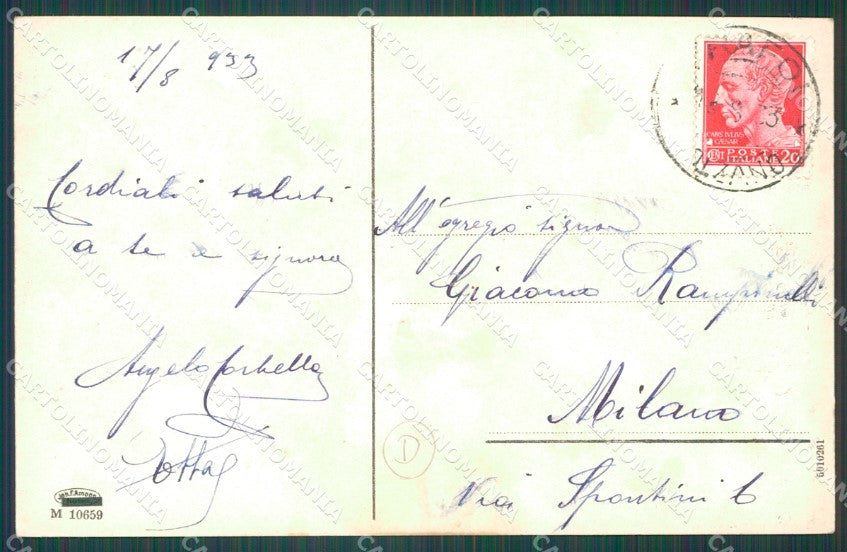 17/8 933
Cordiali saluti
a te e signora
Angelo Corbella
All'egregio signor
Giacomo Rampinelli
Milano
Via Spontini 6
CAIVS IVLIVS
CAESAR
CENT POSTE 20
ITALIANE
Joh. F. Amonn
M 10659
D
6010261
CARTOLINOMANIA